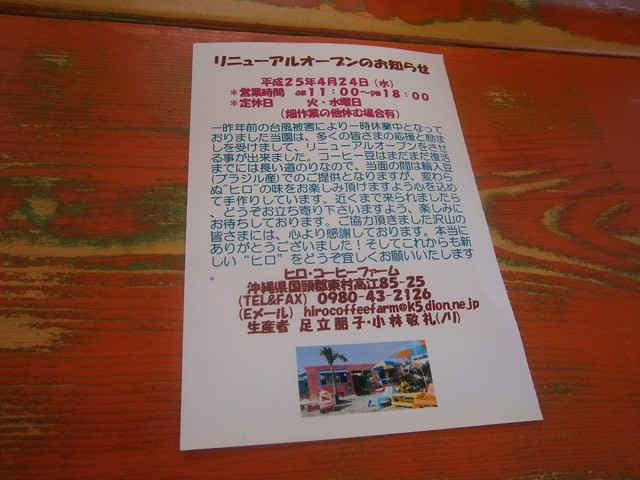 リニューアルオープンのお知らせ
平成25年4月24日（水）
＊営業時間　am11：00～pm18：00
＊定休日　火・水曜日
（畑作業の他休む場合有）
一昨年前の台風被害により一時休業中となって
おりました当園は、多くの皆さまの応援と励ま
しを受けまして、リニューアルオープンをさせ
る事が出来ました。コーヒー豆はまだまだ復活
までには長い道のりなので、当面の間は輸入豆
（ブラジル産）でのご提供となりますが、変わら
ぬ“ヒロ”の味をお楽しみ頂けますよう心を込め
て手作りしています。近くまで来られましたら
、どうぞお立ち寄り下さいますよう、楽しみに
お待ちしております。ご協力頂きました沢山の
皆さまには、心より感謝しております。本当に
ありがとうございました！そしてこれからも新
しい“ヒロ”をどうぞ宜しくお願いいたします
。
ヒロ・コーヒーファーム
沖縄県国頭郡東村高江85-25
（TEL&FAX） 0980-43-2126
（Eメール） hirocoffeefarm@k5.dion.ne.jp
生産者　足立朋子・小林敬礼（ノリ）